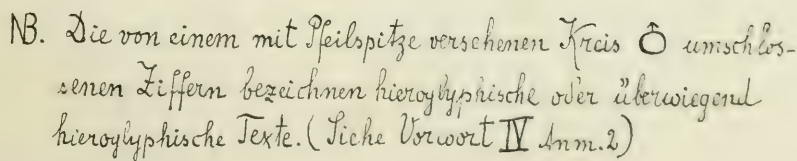 NB. Die von einem mit Pfeilspitze versehenen Kreis Ô umschlos-
senen Ziffern bezeichnen hieroglyphische oder überwiegend
hieroglyphische Texte. (Siehe Vorwort IV Anm. 2)